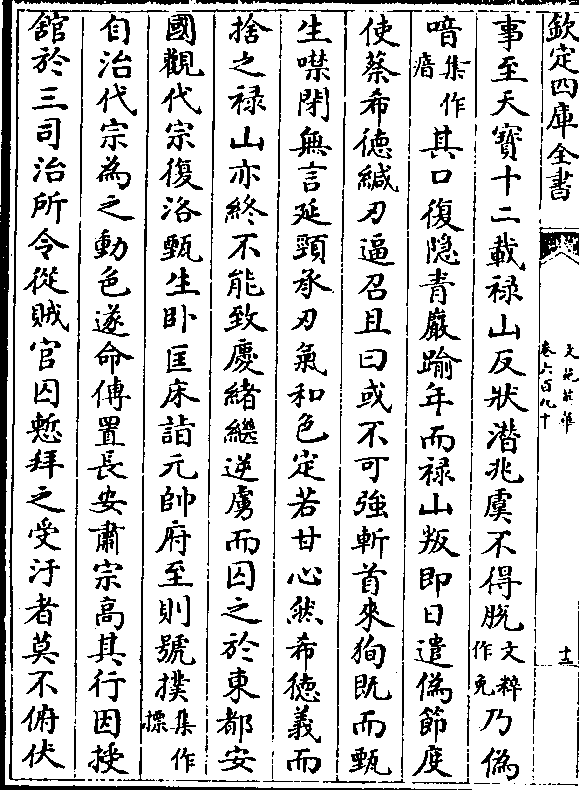 欽定四庫全書
文苑英華
卷六百九十
十二
事至天寶十二載禄山反狀潛兆虞不得脱文粹作免乃偽
喑集作瘖其口復隐青巖踰年而禄山叛即日遣偽節度
使蔡希德緘刃逼召且曰或不可強斬首來狥既而甄
生噤閉無言延頸承刃氣和色定若甘心然希德義而
捨之禄山亦終不能致慶緒繼逆虜而囚之於東都安
國觀代宗復洛甄生卧匡床詣元帥府至則號撲集作摽
自治代宗為之動色遂命傳置長安肅宗髙其行因授
舘於三司治所令從賊官囚慙拜之受汙者莫不俯伏